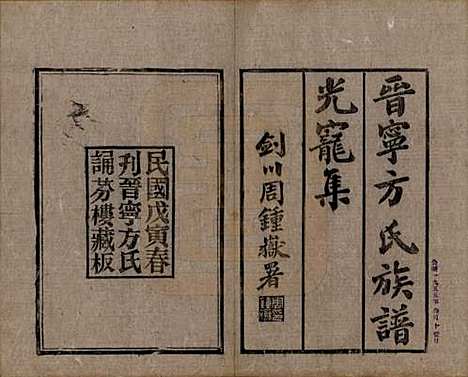 晉寧方氏族譜
光寵集
劍川周鍾嶽署
民國戊寅春
刊晉寧方氏
誦芬樓藏板